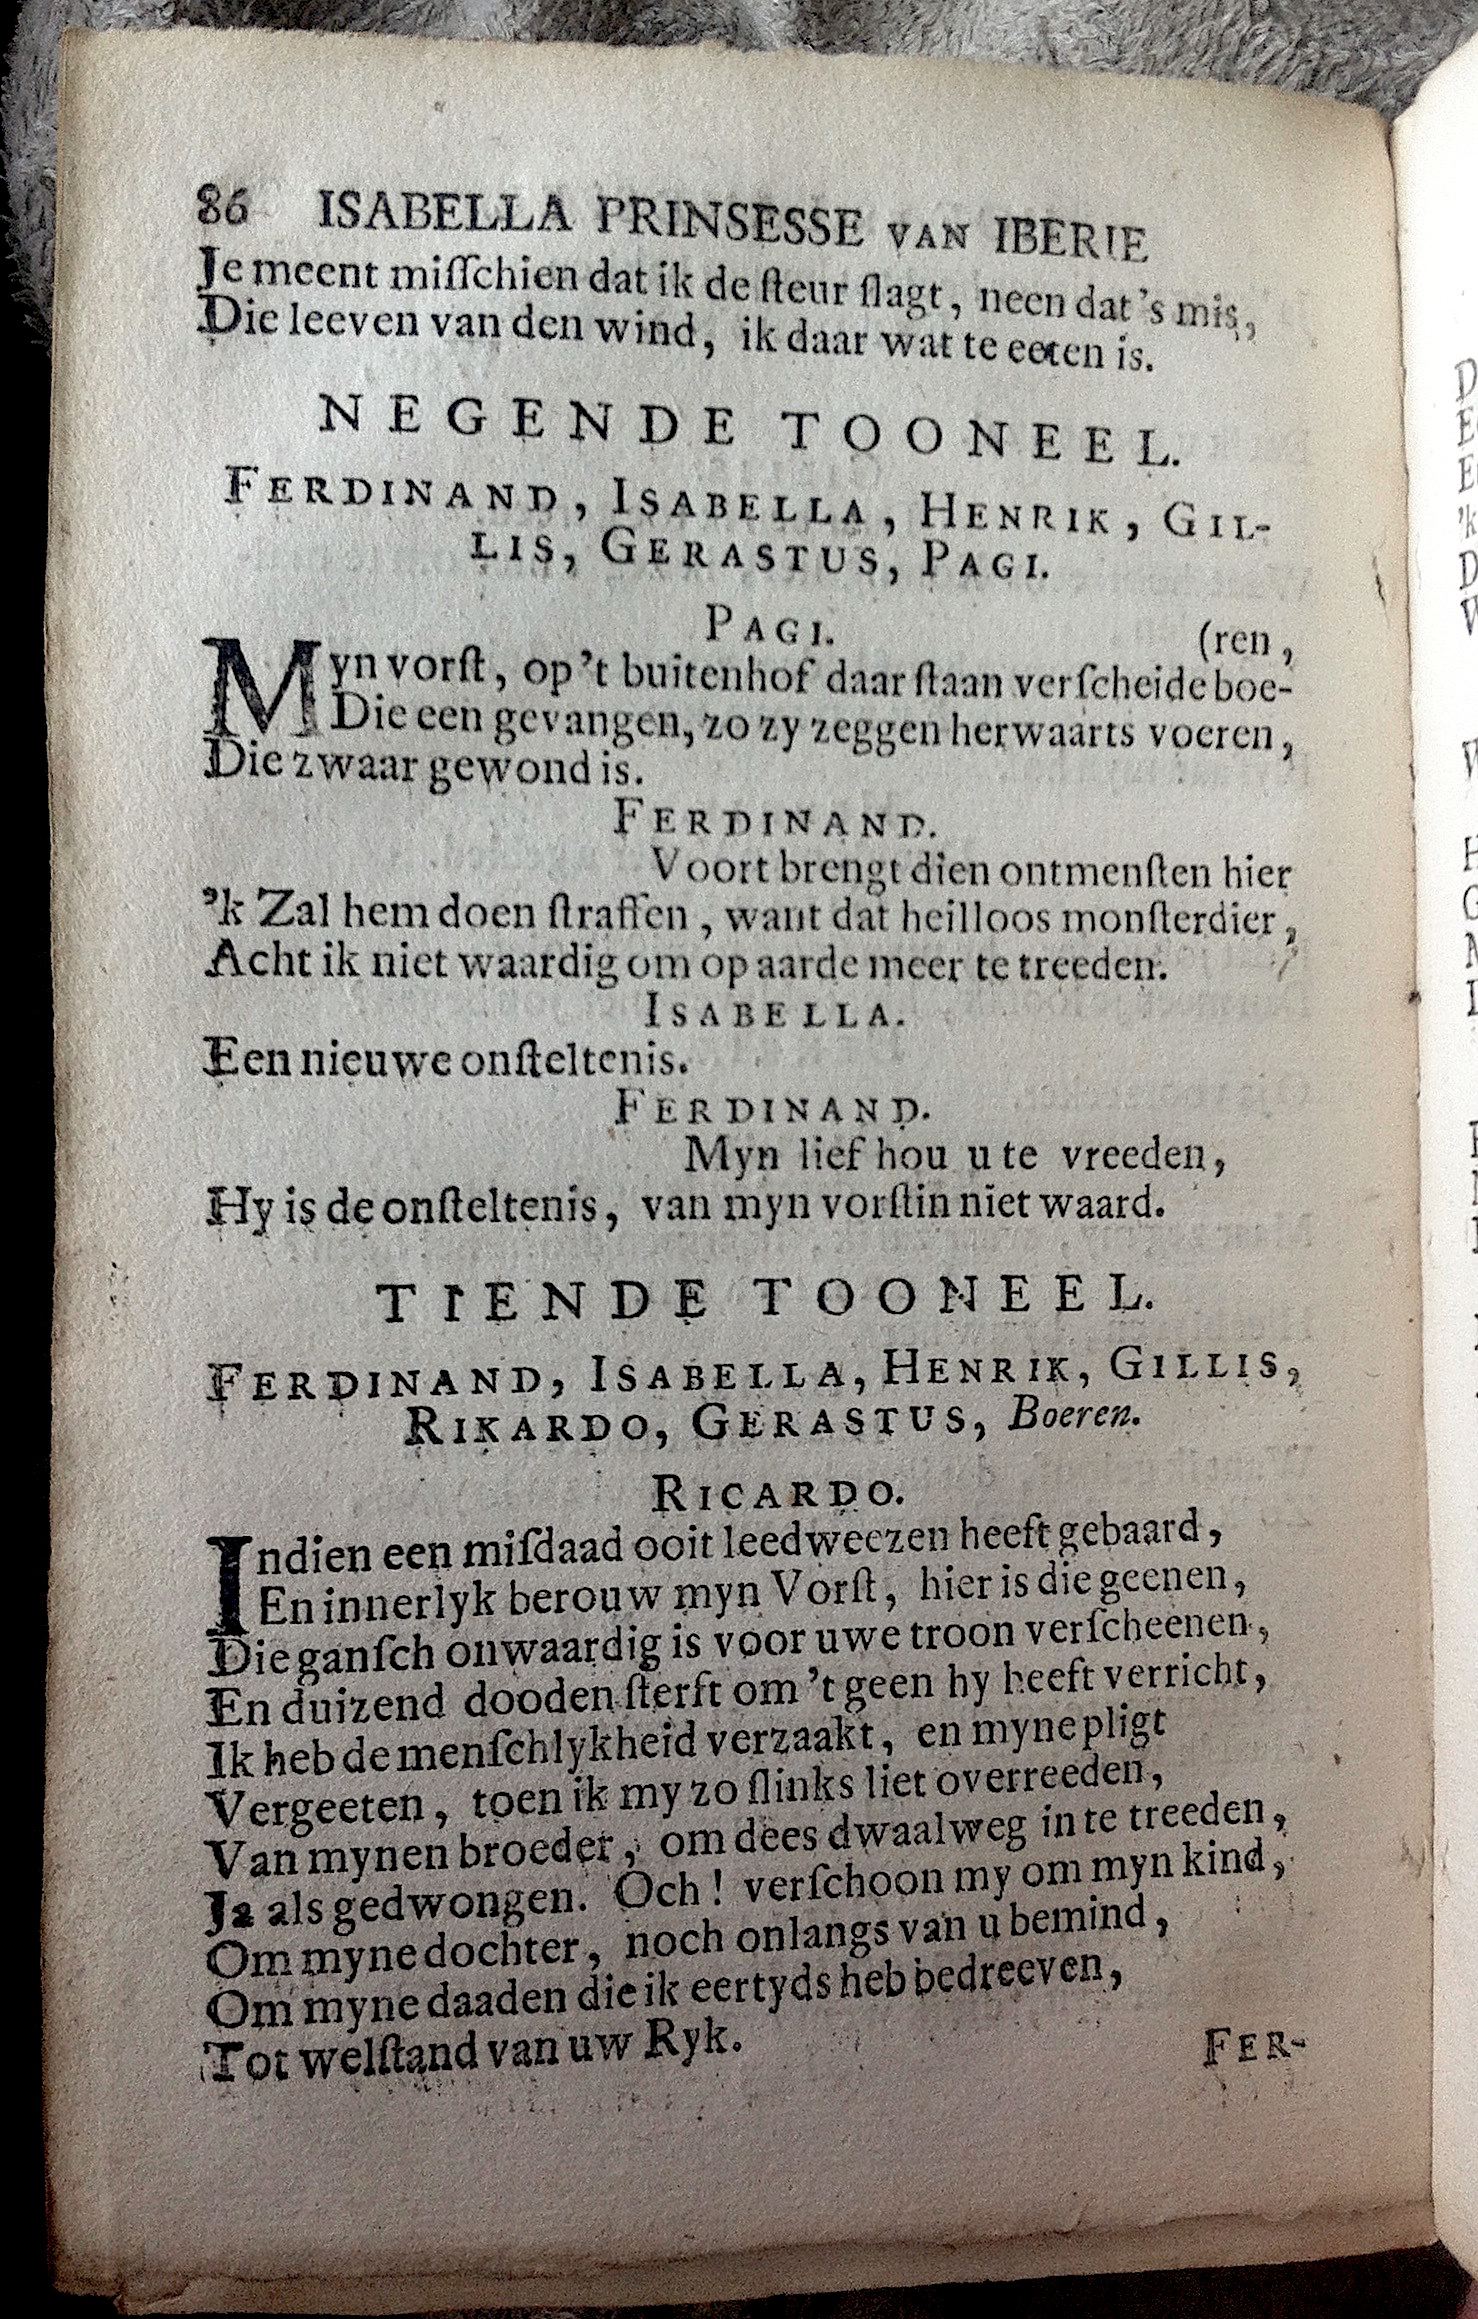 86 ISABELLA PRINSESSE VAN IBERIE
Je meent miſſchien dat ik de ſteur ſlagt, neen dat's mis,
Die leeven van den wind, ik daar wat te eeten is.
NEGENDE TOONEEL.
FERDINAND, ISABELLA, HENRIK, GIL-
LIS, GERASTUS, PAGI.
PAGI. (ren,
Myn vorſt, op 't buitenhof daar ſtaan verſcheide boe-
Die een gevangen, zo zy zeggen herwaarts voeren,
Die zwaar gewond is.
FERDINAND.
Voort brengt dien ontmenſten hier
'k Zal hem doen ſtraffen, want dat heilloos monſterdier,
Acht ik niet waardig om op aarde meer te treeden.
ISABELLA.
Een nieuwe onſteltenis.
FERDINAND.
Myn lief hou u te vreeden,
Hy is de onſteltenis, van myn vorſtin niet waard.
TIENDE TOONEEL.
FERDINAND, ISABELLA, HENRIK, GILLIS,
RIKARDO, GERASTUS, Boeren.
RICARDO.
Indien een miſdaad ooit leedweezen heeft gebaard,
En innerlyk berouw myn Vorſt, hier is die geenen,
Die ganſch onwaardig is voor uwe troon verſcheenen,
En duizend dooden ſterft om 't geen hy heeft verricht,
Ik heb de menſchlykheid verzaakt, en myne pligt
Vergeeten, toen ik my zo ſlinks liet overreeden,
Van mynen broeder, om dees dwaalweg in te treeden,
Ja als gedwongen. Och! verſchoon my om myn kind,
Om myne dochter, noch onlangs van u bemind,
Om myne daaden die ik eertyds heb bedreeven,
Tot welſtand van uw Ryk.
FER-